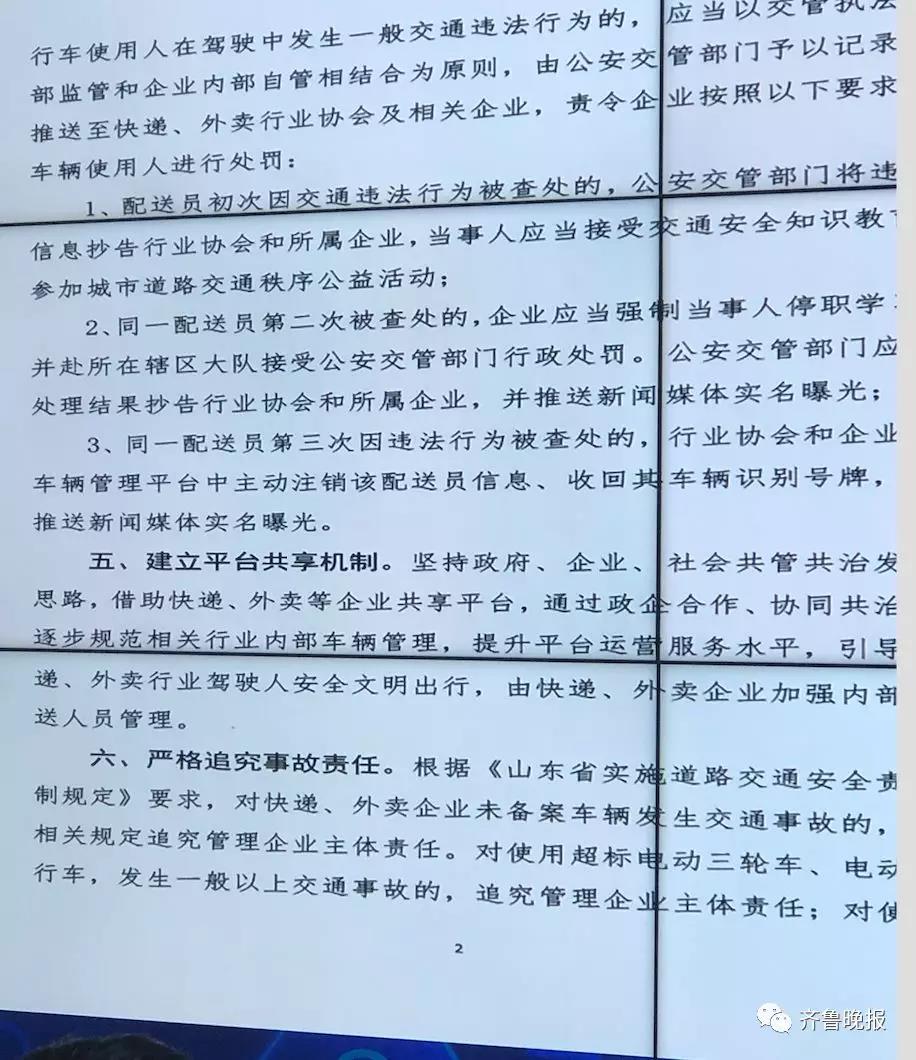 行车使用人在驾驶中发生一般交通违法行为的，应当以交管执法
部监管和企业内部自管相结合为原则，由公安交管部门予以记录
推送至快递、外卖行业协会及相关企业，责令企业按照以下要求
车辆使用人进行处罚：
1、配送员初次因交通违法行为被查处的，公安交管部门将违
信息抄告行业协会和所属企业，当事人应当接受交通安全知识教
参加城市道路交通秩序公益活动；
2、同一配送员第二次被查处的，企业应当强制当事人停职学
并赴所在辖区大队接受公安交管部门行政处罚。公安交管部门应
处理结果抄告行业协会和所属企业，并推送新闻媒体实名曝光；
3、同一配送员第三次因违法行为被查处的，行业协会和企业
车辆管理平台中主动注销该配送员信息、收回其车辆识别号牌，
推送新闻媒体实名曝光。
五、建立平台共享机制。坚持政府、企业、社会共管共治发
思路，借助快递、外卖等企业共享平台，通过政企合作、协同共治
逐步规范相关行业内部车辆管理，提升平台运营服务水平，引导
递、外卖行业驾驶人安全文明出行，由快递、外卖企业加强内部
送人员管理。
六、严格追究事故责任。根据《山东省实施道路交通安全责
制规定》要求，对快递、外卖企业未备案车辆发生交通事故的，
相关规定追究管理企业主体责任。对使用超标电动三轮车、电动
行车，发生一般以上交通事故的，追究管理企业主体责任；对使
2
齐鲁晚报